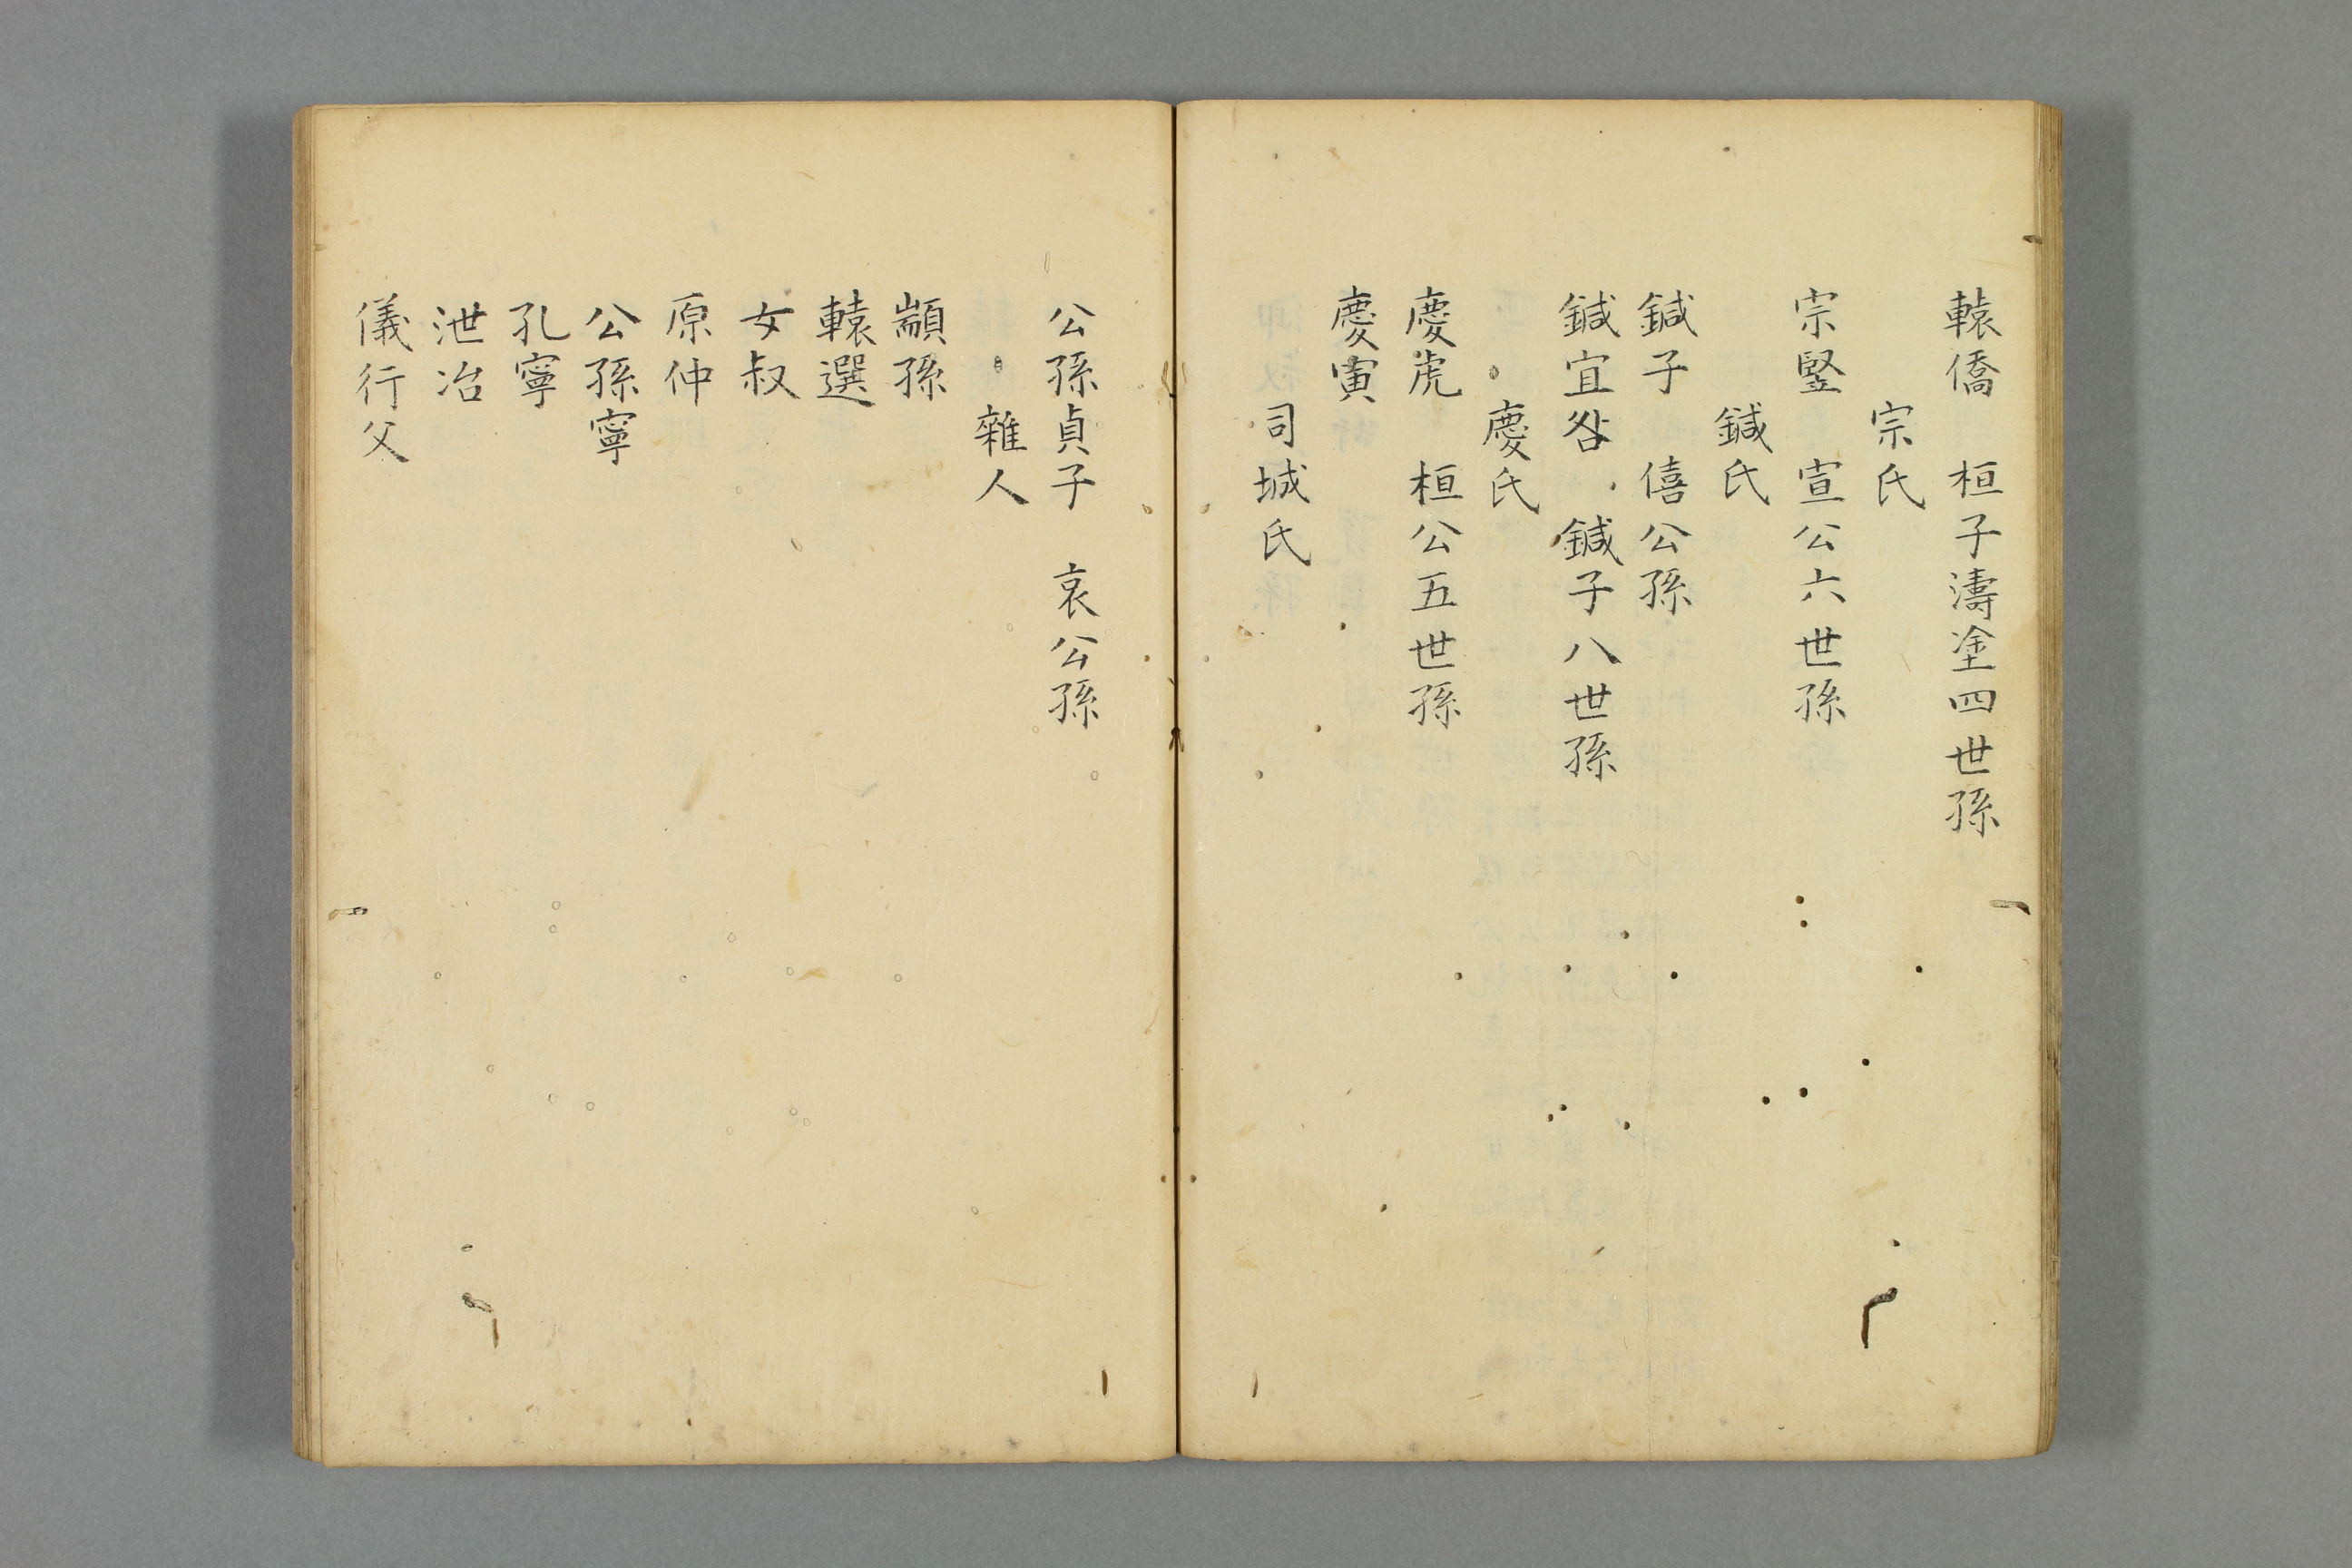 轅僑　桓子濤塗四世孫
宗氏
宗豎　宣公六世孫
鍼氏
鍼子　僖公孫
鍼宜咎　鍼子八世孫
慶氏
慶虎　桓公五世孫
慶寅
司城氏
公孫貞子　哀公孫
雜人
顓孫
轅選
女叔
原仲
公孫寧
孔寧
泄冶
儀行父